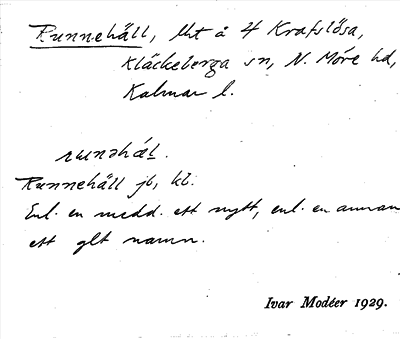 Runnehäll, lht å 4 Krafslösa,
Kläckeberga sn, N. Möre hd,
Kalmar l.
runəhäl.
Runnehäll jb, kl.
Enl. en medd. ett nytt, enl. en annan
ett glt namn.
Ivar Modéer 1929.